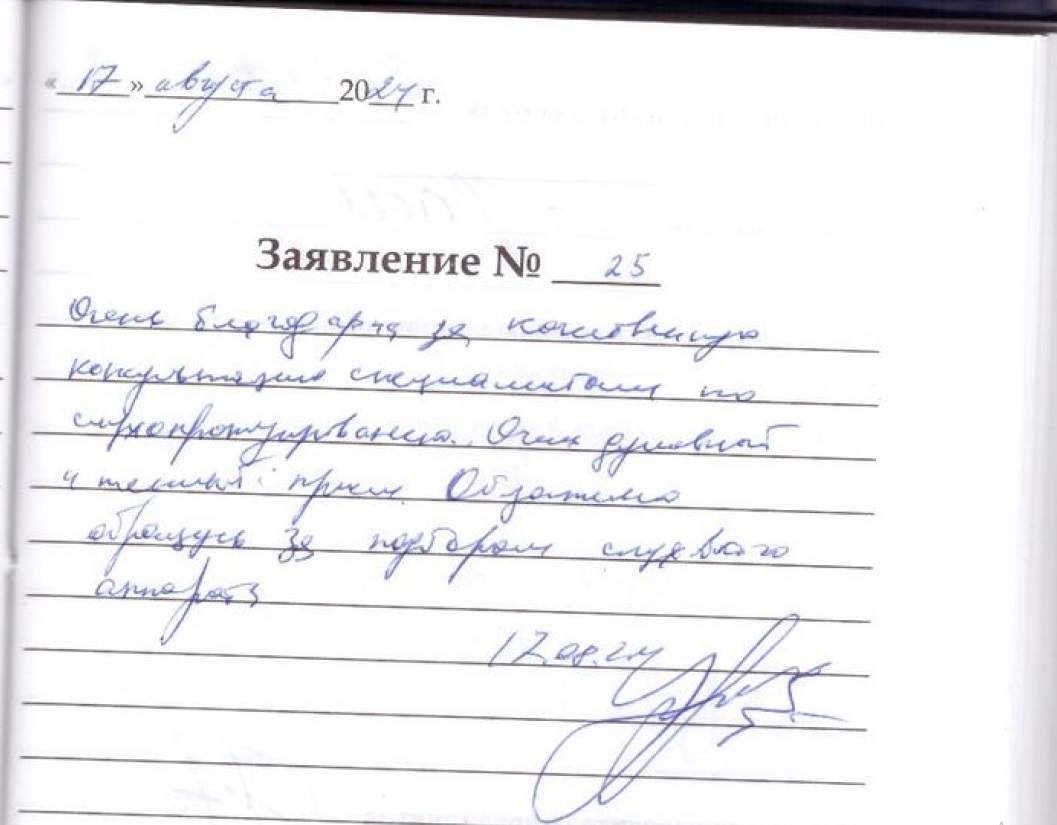 « 17 » августа 2024 г.
Заявление № 25
Очень благодарна за качественную
консультацию специалистам по
слухопротезированию. Очень душевный
и теплый приём. Обязательно
обращусь за подбором слухового
аппарата
17.08.24